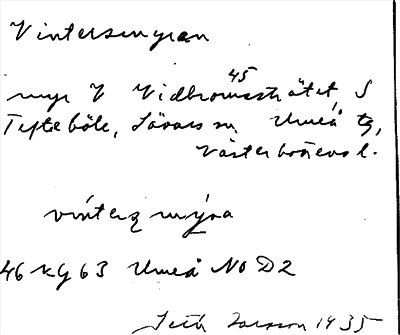 Vintersmyran
myr V Vidbromsstråtet, S
45
Tefteböle, Sävars sn Umeå tg,
Västerbottens l.
vínterʒ mýra
46 Kg 63 Umeå NO D2
Seth Larsson 1935